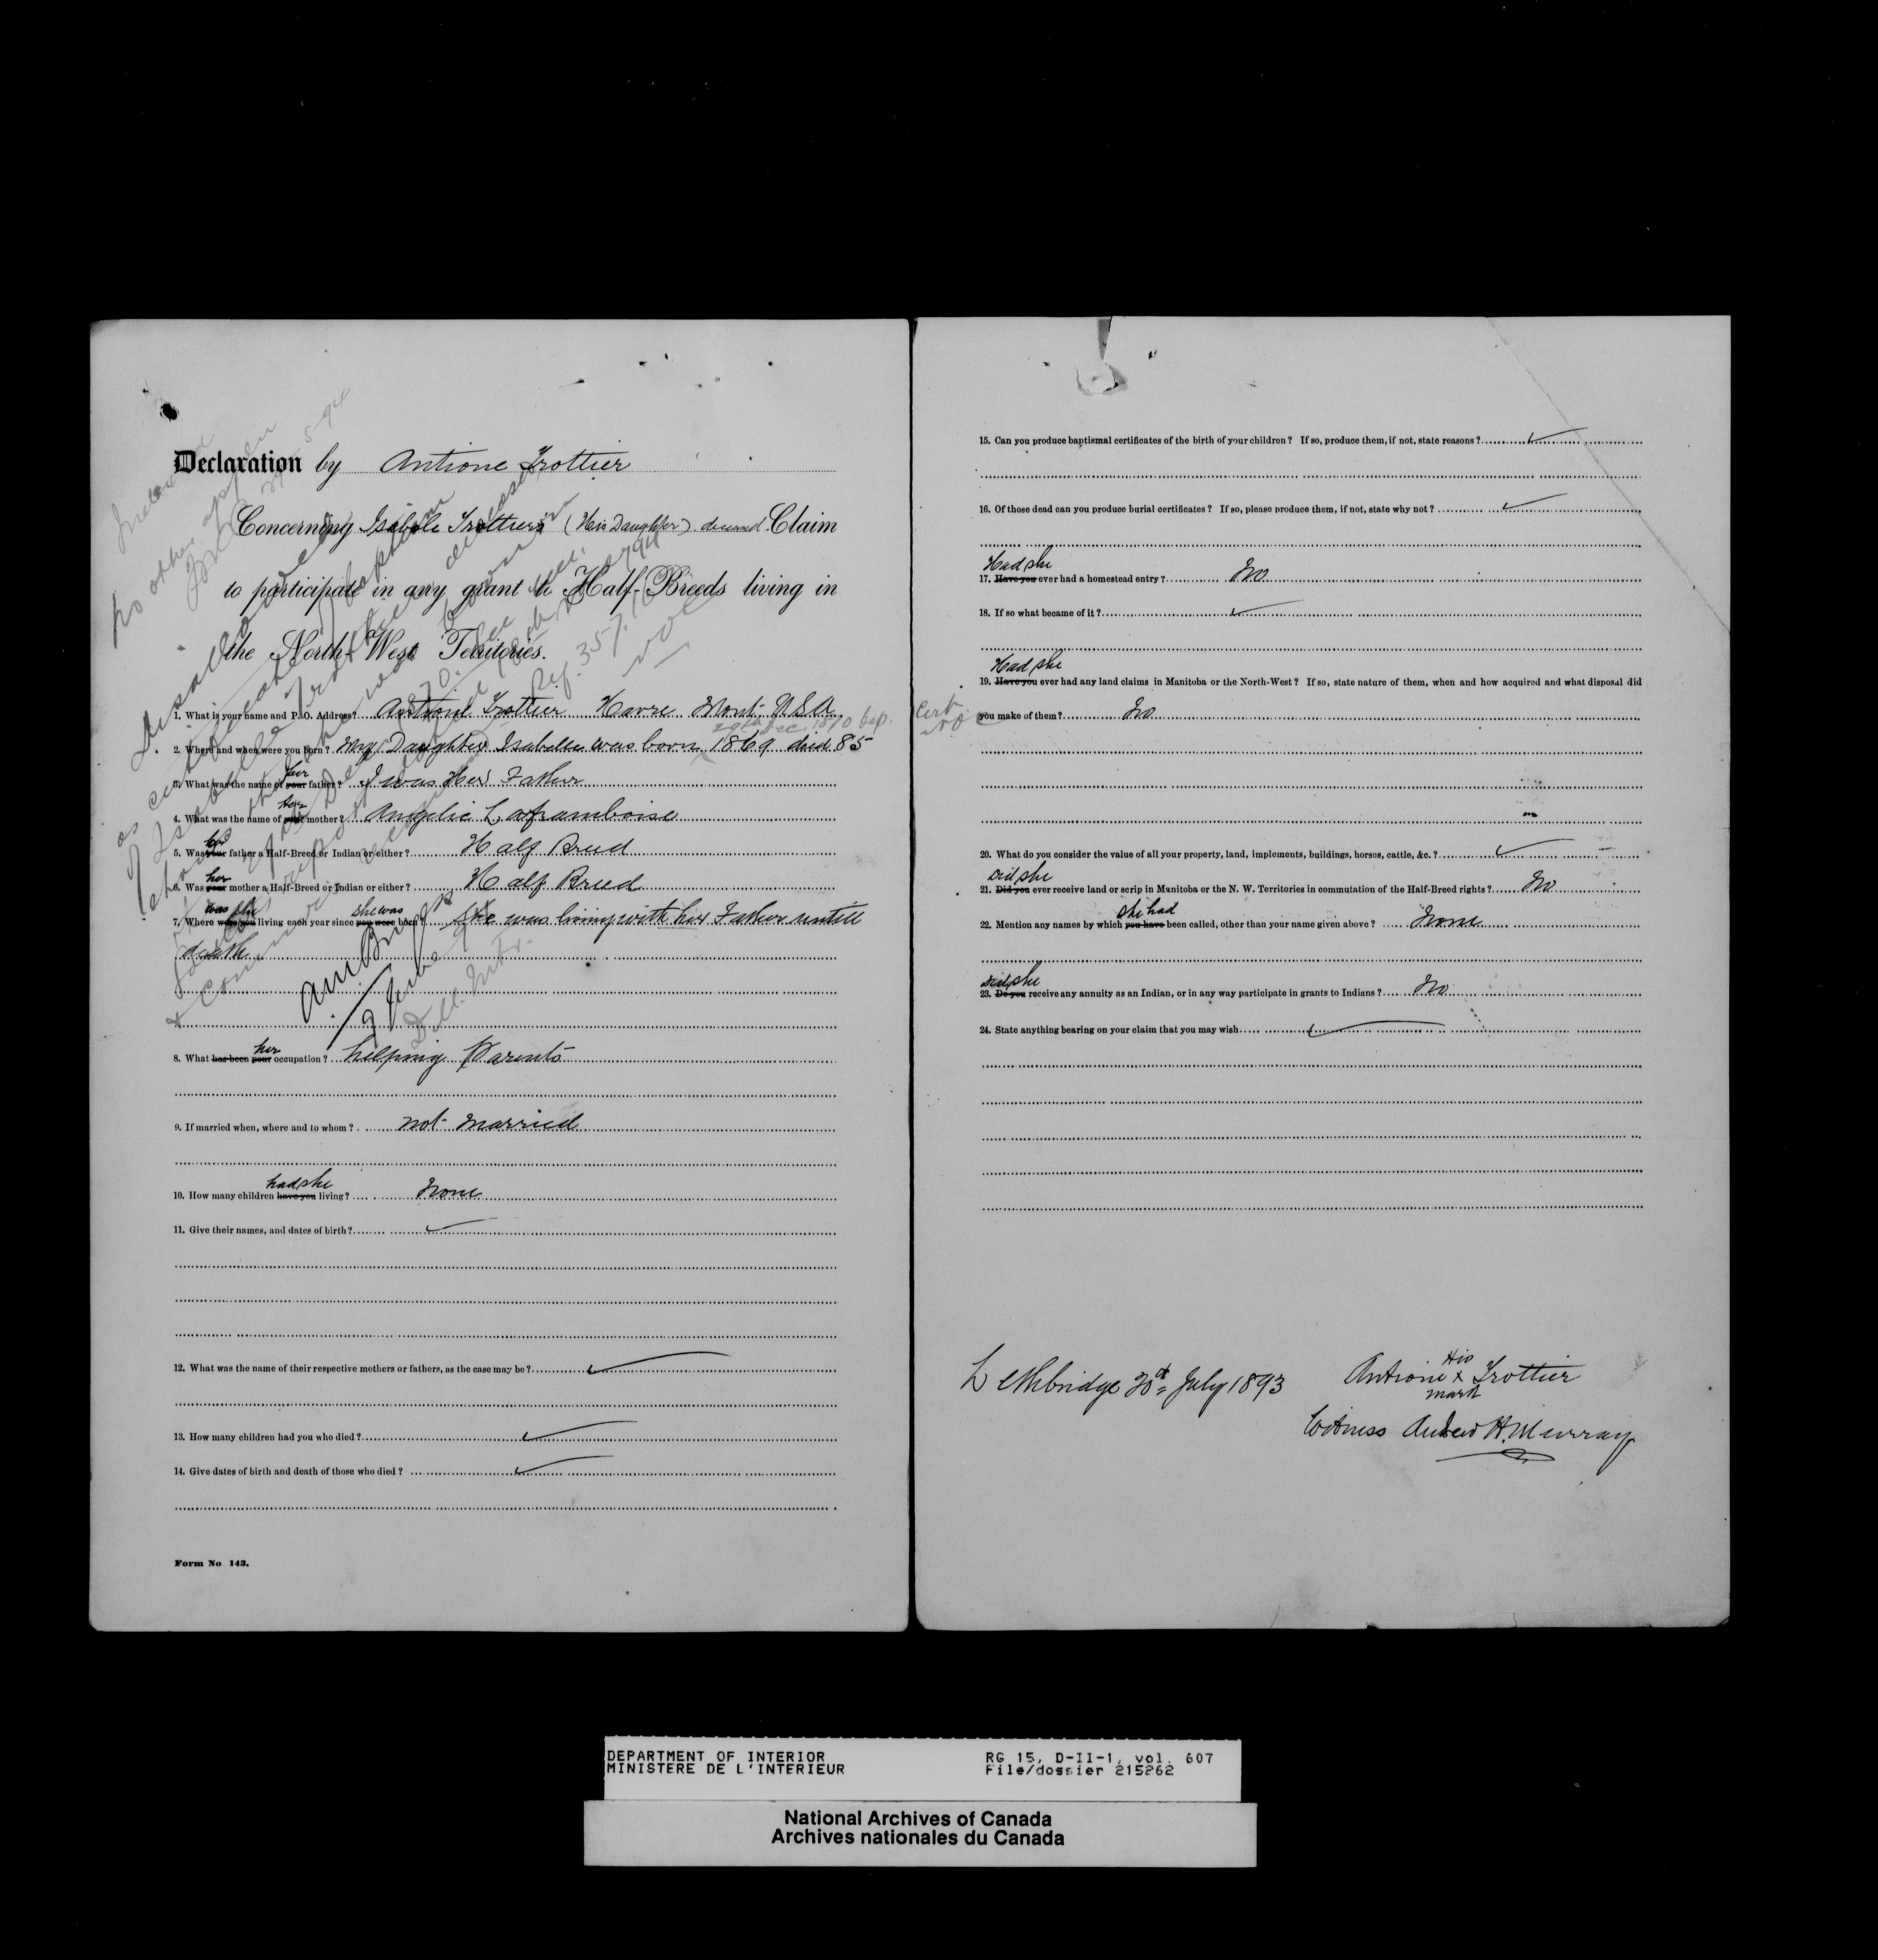 Declaration by Antione Trottier
Concerning Isabele Trottiers (His Daughter) deceased Claim
to participate in any grant to Half-Breeds living in
the North-West Territories.
1. What is your name and P. O. Address? Antione Trottier Havre Mont. U.S.A.
29th Dec. 1870 bap.
2. Where and when were you born? My Daughter Isabella was born 1869 died 85
her
3. What was the name of your father? I was Her Father
her
4. What was the name of your mother? Angelic Laframboise
her
5. Was your father a Half-Breed or Indian or either? Half Breed
her
6. Was your mother a Half-Breed or Indian or either? Half Breed
was she she was
7. Where were you living each year since you were born? She was living with her Father untill
death
her
8. What has been your occupation? helping Parents
9. If married when, where and to whom? not married
had she
10. How many children have you living? None
11. Give their names, and dates of birth?
12. What was the name of their respective mothers or fathers, as the case may be?
13. How many children had you who died?
14. Give dates of birth and death of those who died?
Form No 143.
no other
5-94
Disallowed
as certificate of baptism
of Isabelle Trottier
shows that she was born
1870. See
9 June 94
D.M. Int.
Ref. 357.10
15. Can you produce baptismal certificates of the birth of your children? If so, produce them, if not, state reasons?
16. Of those dead can you produce burial certificates? If so, please produce them, if not, state why not?
Had she
17. Have you ever had a homestead entry? No
18. If so what became of it?
Had she
19. Have you ever had any land claims in Manitoba or the North-West? If so, state nature of them, when and how acquired and what disposal did
Cert.
you make of them? No
20. What do you consider the value of all your property, land, implements, buildings, horses, cattle, &c.?
Did she
21. Did you ever receive land or scrip in Manitoba or the N. W. Territories in commutation of the Half-Breed rights? No
she had
22. Mention any names by which you have been called, other than your name given above? None
Did she
23. Do you receive any annuity as an Indian, or in any way participate in grants to Indians? No
24. State anything bearing on your claim that you may wish
Lethbridge July 1893
His
Antione x Trottier
mark
Witness Andrew H. Murray
DEPARTMENT OF INTERIOR RG 15, D-II-1, vol. 607
MINISTERE DE L'INTERIEUR File/dossier 215262
National Archives of Canada
Archives nationales du Canada